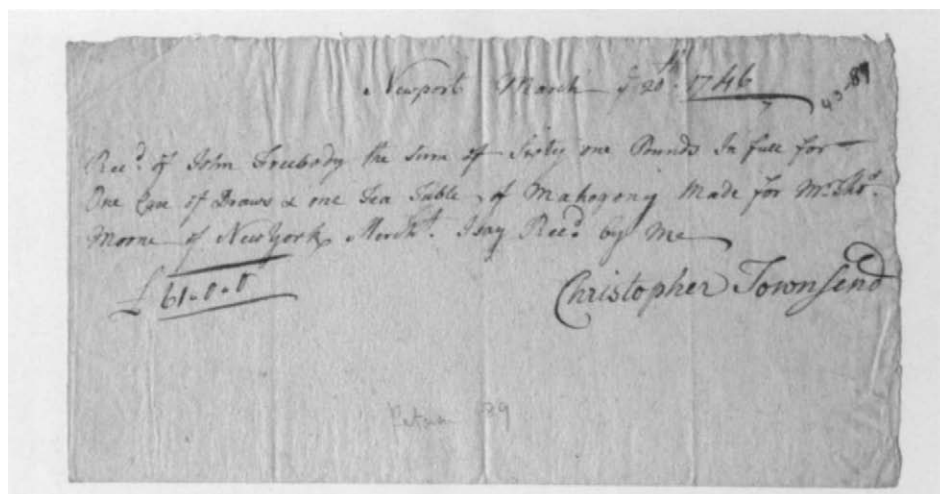 Newport March ye 20th: 1746
7
43-89
Recd. of John Freebody the sum of Sixty one Pounds In full for
One Case of Draws & one Tea Table, of Mahogony Made for Mr. Thos.
Moone of New York, Mercht. I say Recd. by Me
£ 61-0-0
Christopher Townsend
89